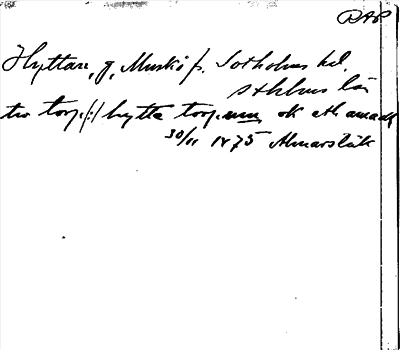 RAP
Hyttan, g, Muskö s. Sotholms hd.
Sthlms län
tw torp /:/ hytta torp ok eth annadt
30/11 1475 Almarstäk